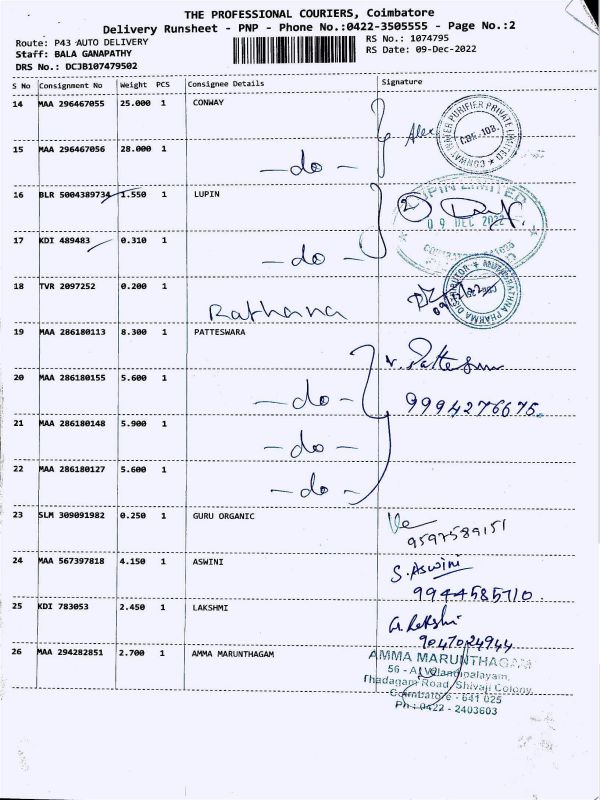 THE PROFESSIONAL COURIERS, Coimbatore
Delivery Runsheet - PNP - Phone No.:0422-3505555 - Page No.:2
Route: P43 AUTO DELIVERY
RS No.: 1074795
Staff: BALA GANAPATHY
RS Date: 09-Dec-2022
DRS No.: DCJB107479502
S No Consignment No Weight PCS Consignee Details Signature
14 MAA 296467055 25.000 1 CONWAY
Alex
CONWAY WATER PURIFIER PRIVATE LIMITED
CBE-10B.
15 MAA 296467056 28.000 1
- do -
16 BLR 5004389734 1.550 1 LUPIN
LUPIN LIMITED
2
09 DEC 2022
17 KDI 489483 0.310 1
- do -
18 TVR 2097252 0.200 1
Rathana
19 MAA 286180113 8.300 1 PATTESWARA
20 MAA 286180155 5.600 1
- do -
9994276675.
21 MAA 286180148 5.900 1
- do -
22 MAA 286180127 5.600 1
- do -
23 SLM 309091982 0.250 1 GURU ORGANIC
9597589151
24 MAA 567397818 4.150 1 ASWINI
S. Aswini
9944585710.
25 KDI 783053 2.450 1 LAKSHMI
9047024944
26 MAA 294282851 2.700 1 AMMA MARUNTHAGAM
AMMA MARUNTHAGAM
56 - A, Velandipalayam,
Thadagam Road, Shivaji Colony,
Coimbatore - 641 025
Ph : 0422 - 2403603